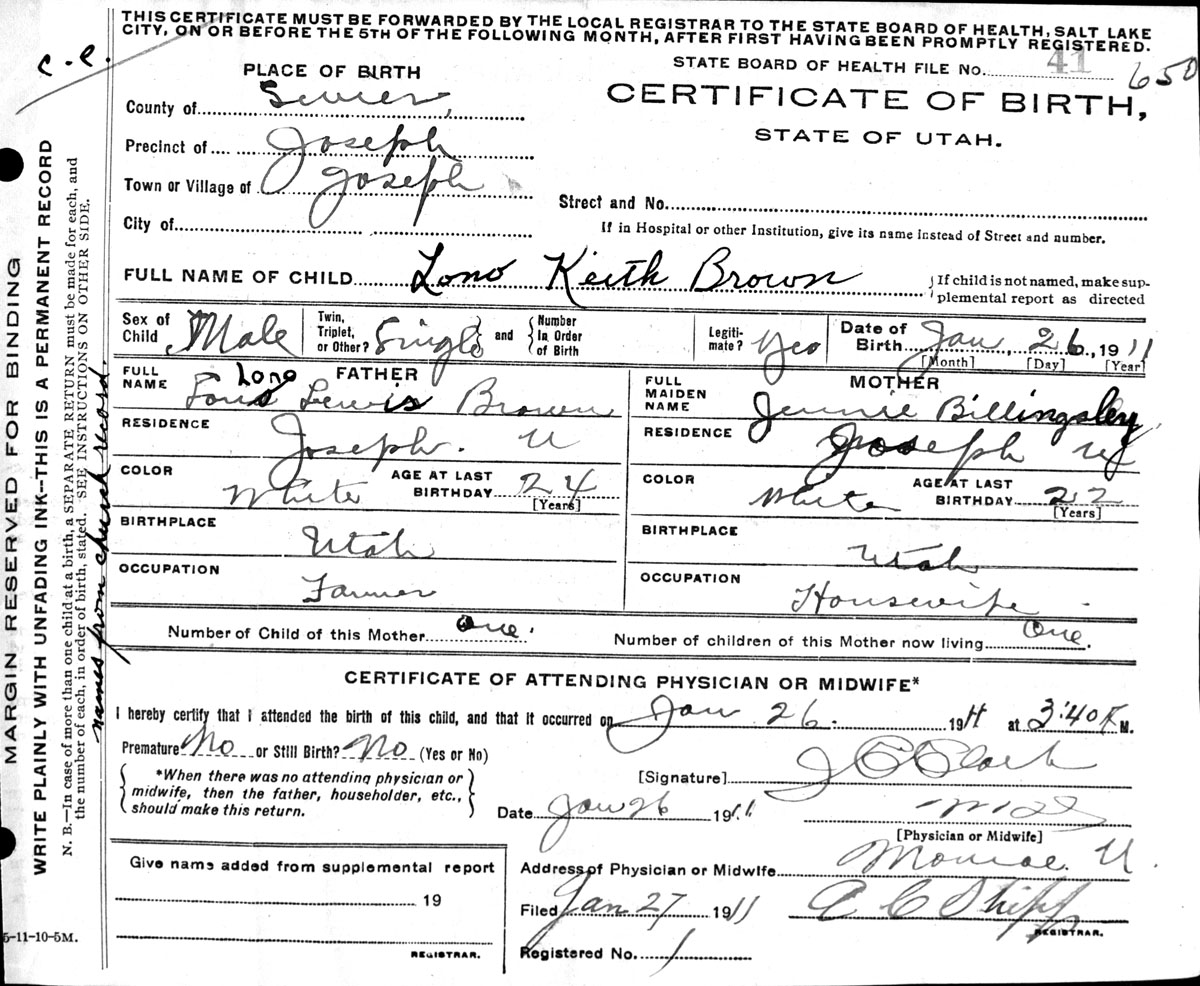 THIS CERTIFICATE MUST BE FORWARDED BY THE LOCAL REGISTRAR TO THE STATE BOARD OF HEALTH, SALT LAKE
CITY, ON OR BEFORE THE 5TH OF THE FOLLOWING MONTH, AFTER FIRST HAVING BEEN PROMPTLY REGISTERED.
c.c.
STATE BOARD OF HEALTH FILE No. 41 650
PLACE OF BIRTH
CERTIFICATE OF BIRTH,
STATE OF UTAH.
County of Sevier,
Precinct of Joseph
Town or Village of Joseph
Street and No.
City of
If in Hospital or other Institution, give its name instead of Street and number.
FULL NAME OF CHILD Lono Keith Brown
If child is not named, make sup-
plemental report as directed
Sex of Child Male
Twin, Triplet, or Other? Single and Number In Order of Birth
Legiti-mate? Yes
Date of Birth Jan 26, 1911
[Month] [Day] [Year]
FATHER
FULL NAME Lono Lewis Brown
RESIDENCE Joseph. U
COLOR White AGE AT LAST BIRTHDAY 24
[Years]
BIRTHPLACE Utah
OCCUPATION Farmer
MOTHER
FULL MAIDEN NAME Jennie Billingsley
RESIDENCE Joseph
COLOR White AGE AT LAST BIRTHDAY 22
[Years]
BIRTHPLACE Utah
OCCUPATION Housewife
Number of Child of this Mother One.
Number of children of this Mother now living One.
CERTIFICATE OF ATTENDING PHYSICIAN OR MIDWIFE*
I hereby certify that I attended the birth of this child, and that it occurred on Jan 26. 1911 at 3:40 M.
Premature No or Still Birth? No (Yes or No)
*When there was no attending physician or
midwife, then the father, householder, etc.,
should make this return.
[Signature]
Date Jan 26 1911
[Physician or Midwife]
Give name added from supplemental report
19
REGISTRAR.
Address of Physician or Midwife Monroe. U.
Filed Jan 27 1911 A C Shipp
REGISTRAR.
Registered No. 1
5-11-10-5M.
MARGIN RESERVED FOR BINDING
WRITE PLAINLY WITH UNFADING INK--THIS IS A PERMANENT RECORD
N. B.—In case of more than one child at a birth, a SEPARATE RETURN must be made for each, and
the number of each, in order of birth, stated. SEE INSTRUCTIONS ON OTHER SIDE.
names from church record.